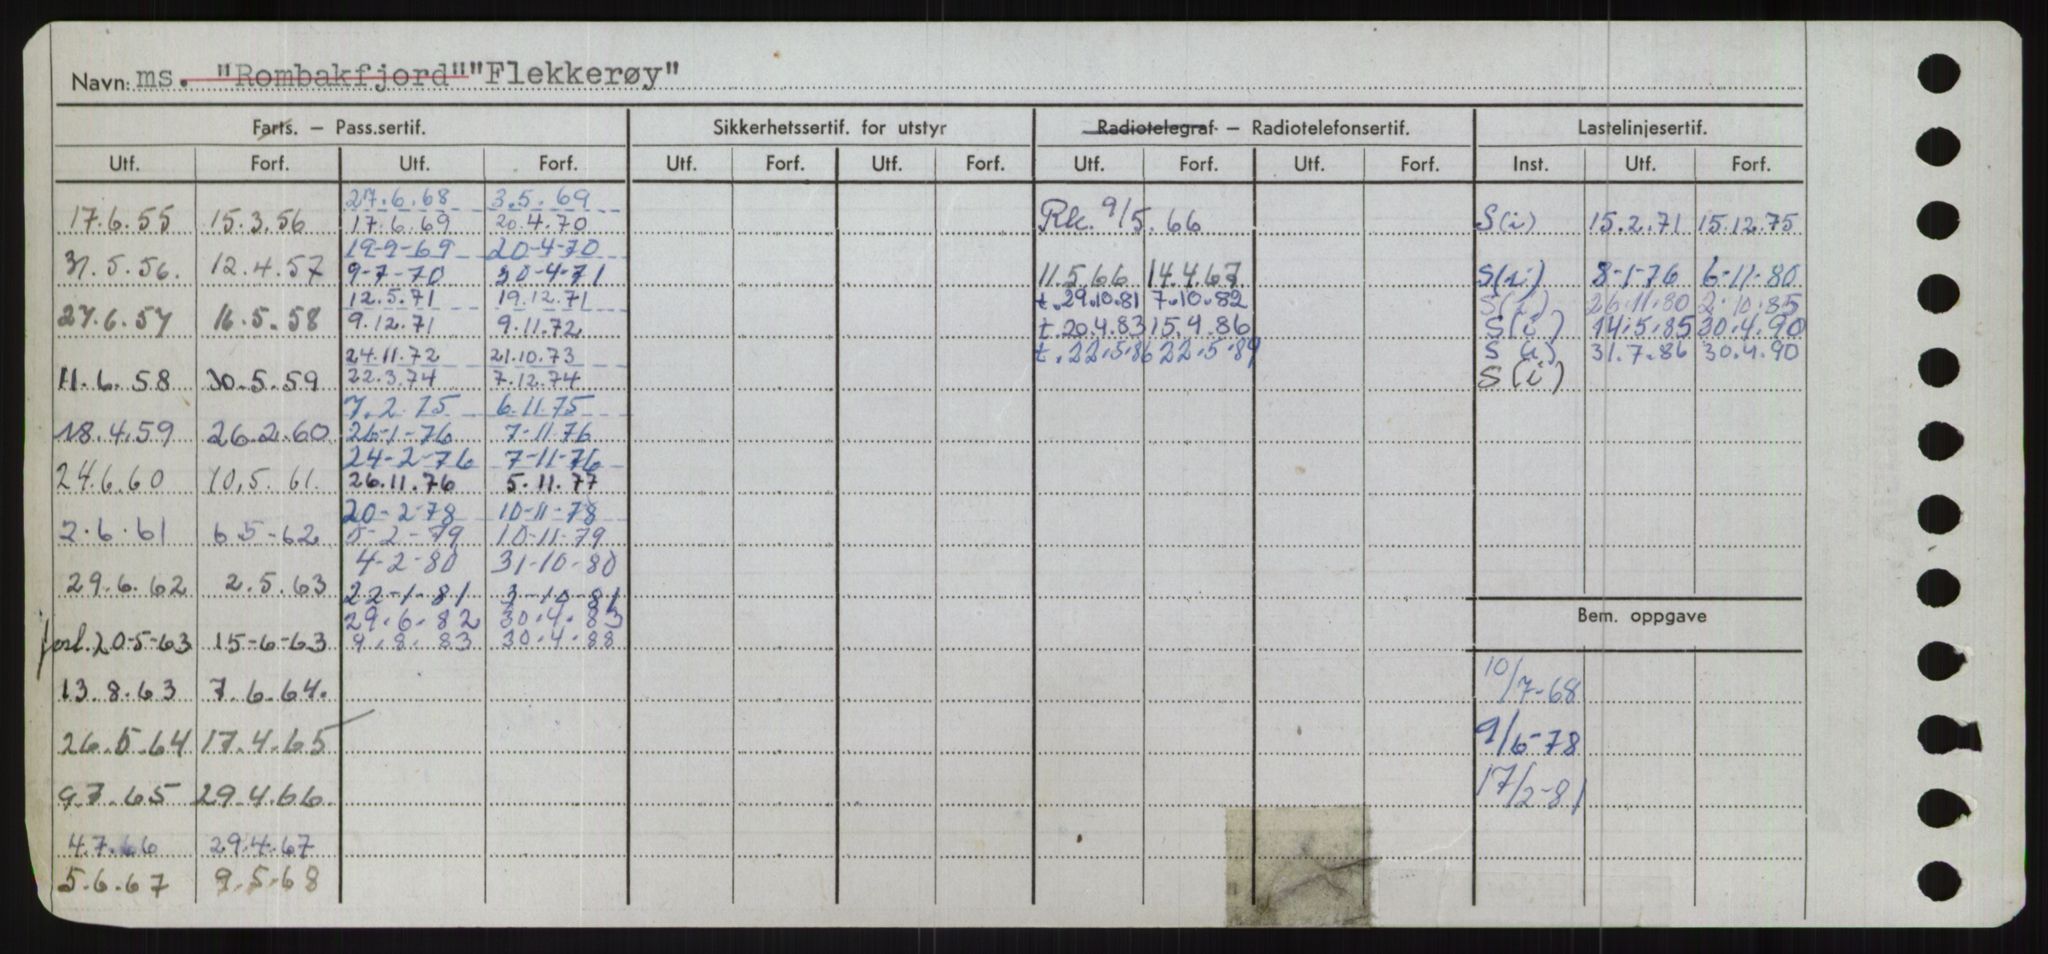 Navn: ms. "Rombakfjord" "Flekkerøy"
Farts. – Pass.sertif. Sikkerhetssertif. for utstyr Radiotelegraf. – Radiotelefonsertif. Lastelinjesertif.
Utf. Forf. Utf. Forf. Utf. Forf. Utf. Forf. Utf. Forf. Utf. Forf. Inst. Utf. Forf.
27.6.68 3.5.69
17.6.55 15.3.56 17.6.69 20.4.70 Rk. 9/5.66 S(i) 15.2.71 15.12.75
19-9-69 20-4-70
31.5.56. 12.4.57 9-7-70 30-4-71 11.5.66 14.4.67 S(i) 8-1-76 6-11-80
12.5.71 19.12.71 t.29.10.81 7.10.82 S(i) 26.11.80 2.10.85
27.6.57 16.5.58 9.12.71 9.11.72 t.20.4.83 15.4.86 S(i) 14.5.85 30.4.90
24.11.72 21.10.73 t.22.5.86 22.5.89 S(i) 31.7.86 30.4.90
11.6.58 30.5.59 22.3.74 7.12.74 S(i)
7.2.75 6.11.75
18.4.59 26.2.60 26-1-76 7-11-76
24-2-76 7-11-76
24.6.60 10.5.61. 26.11.76 5.11.77
20-2-78 10-11-78
2.6.61 6 5-62 5-2-79 10-11-79
4-2-80 31-10-80
29.6.62 2.5.63 22-1-81 3-10-81
29.6.82 30.4.83 Bem. oppgave
forl.20-5-63 15-6-63 9.8.83 30.4.88
13.8.63 7.6.64. 10/7-68
26.5.64 17.4.65 9/6-78
9.7.65 29.4.66. 17/2-81
4.7.66 29.4.67
5.6.67 9.5.68